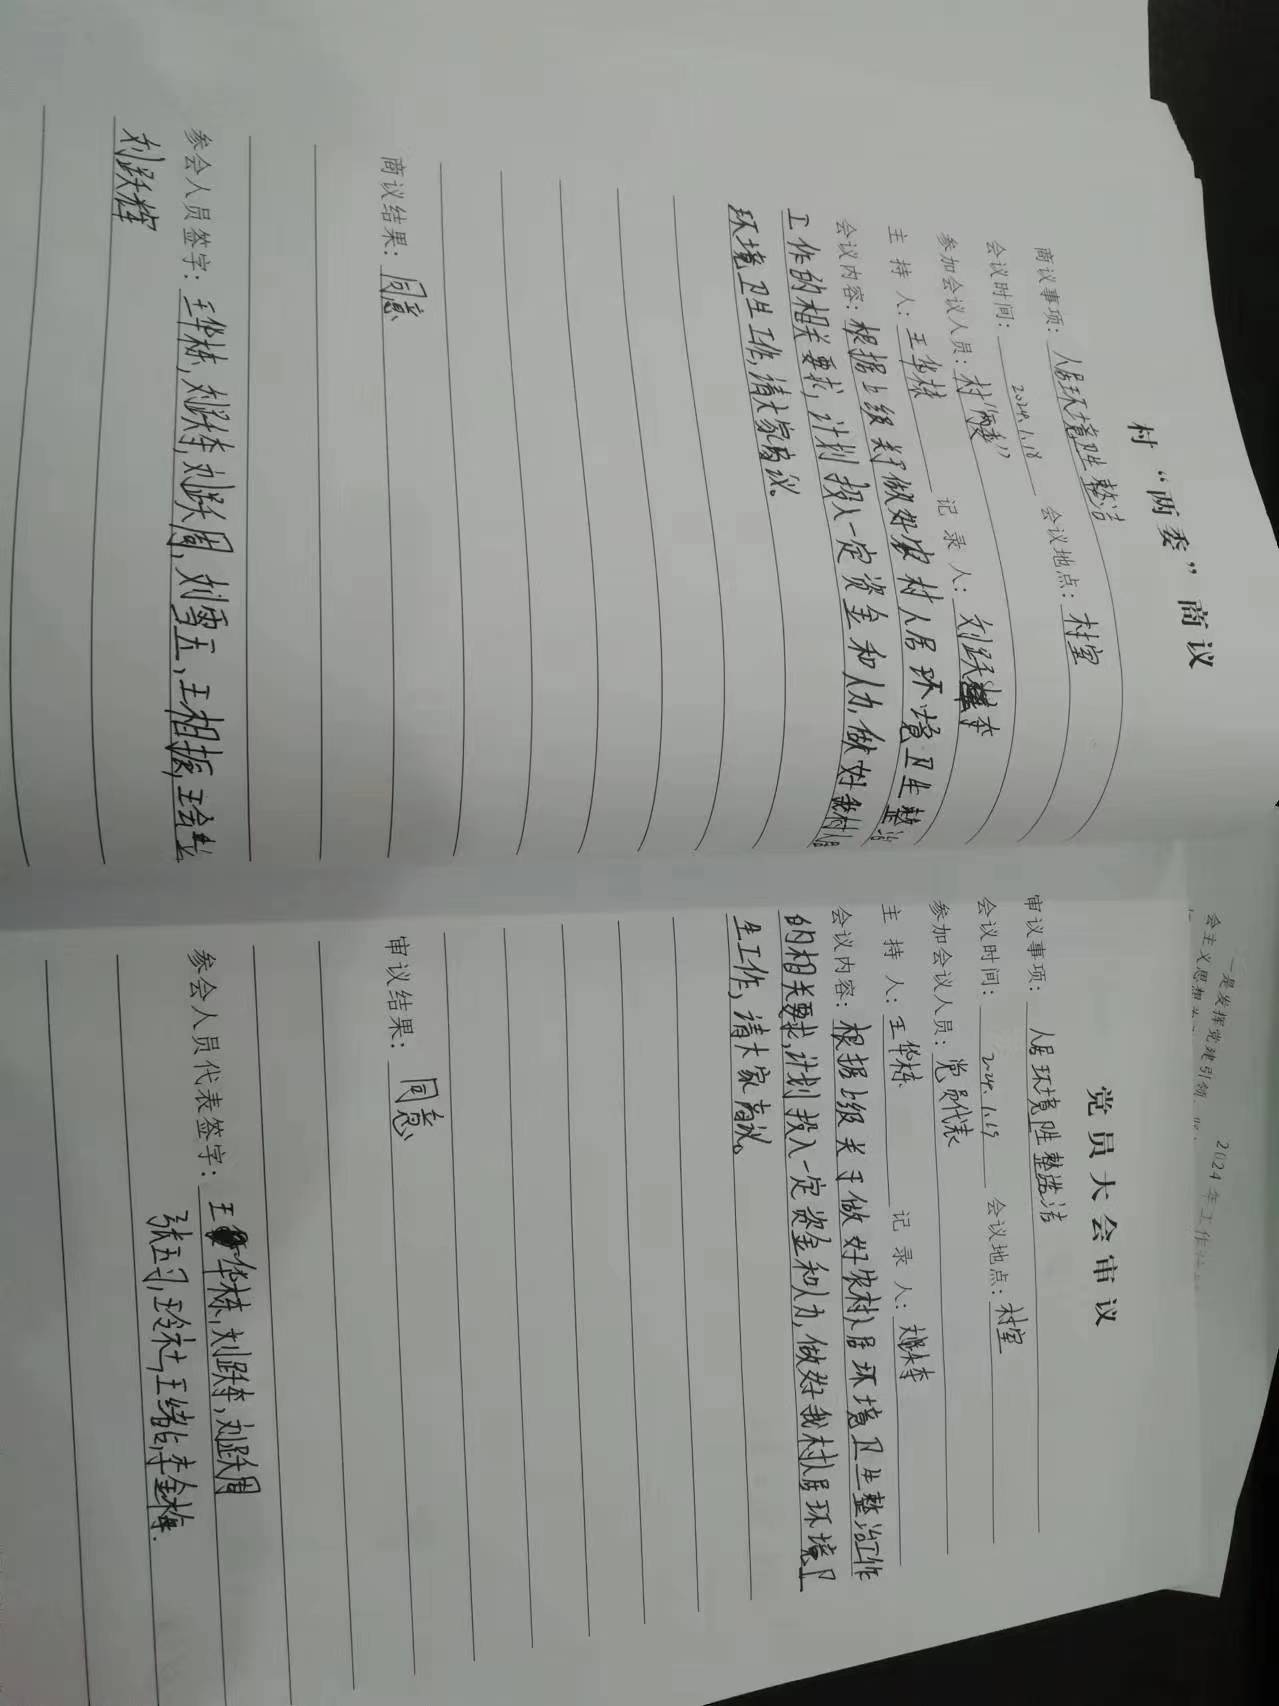 村“两委”商议
商议事项：人居环境卫生整洁
会议时间：2024.1.18 会议地点：村室
参加会议人员：村“两委”
主持人：王华栋 记录人：刘跃李
会议内容：根据上级关于做好农村人居环境卫生整治
工作的相关要求，计划投入一定资金和人力，做好我村人居
环境卫生工作，请大家商议。
商议结果：同意
参会人员签字：王华栋，刘跃李，刘跃周，刘雪五，王相振，
刘跃辉
党员大会审议
审议事项：人居环境卫生整洁
会议时间：2024.1.19 会议地点：村室
参加会议人员：党员代表
主持人：王华栋 记录人：刘跃李
会议内容：根据上级关于做好农村人居环境卫生整治工作
的相关要求，计划投入一定资金和人力，做好我村人居环境卫
生工作，请大家商议。
审议结果：同意
参会人员代表签字：王华栋，刘跃李，刘跃周
李金梅.
2024年工作
一是发挥党建引领，
会主义思想